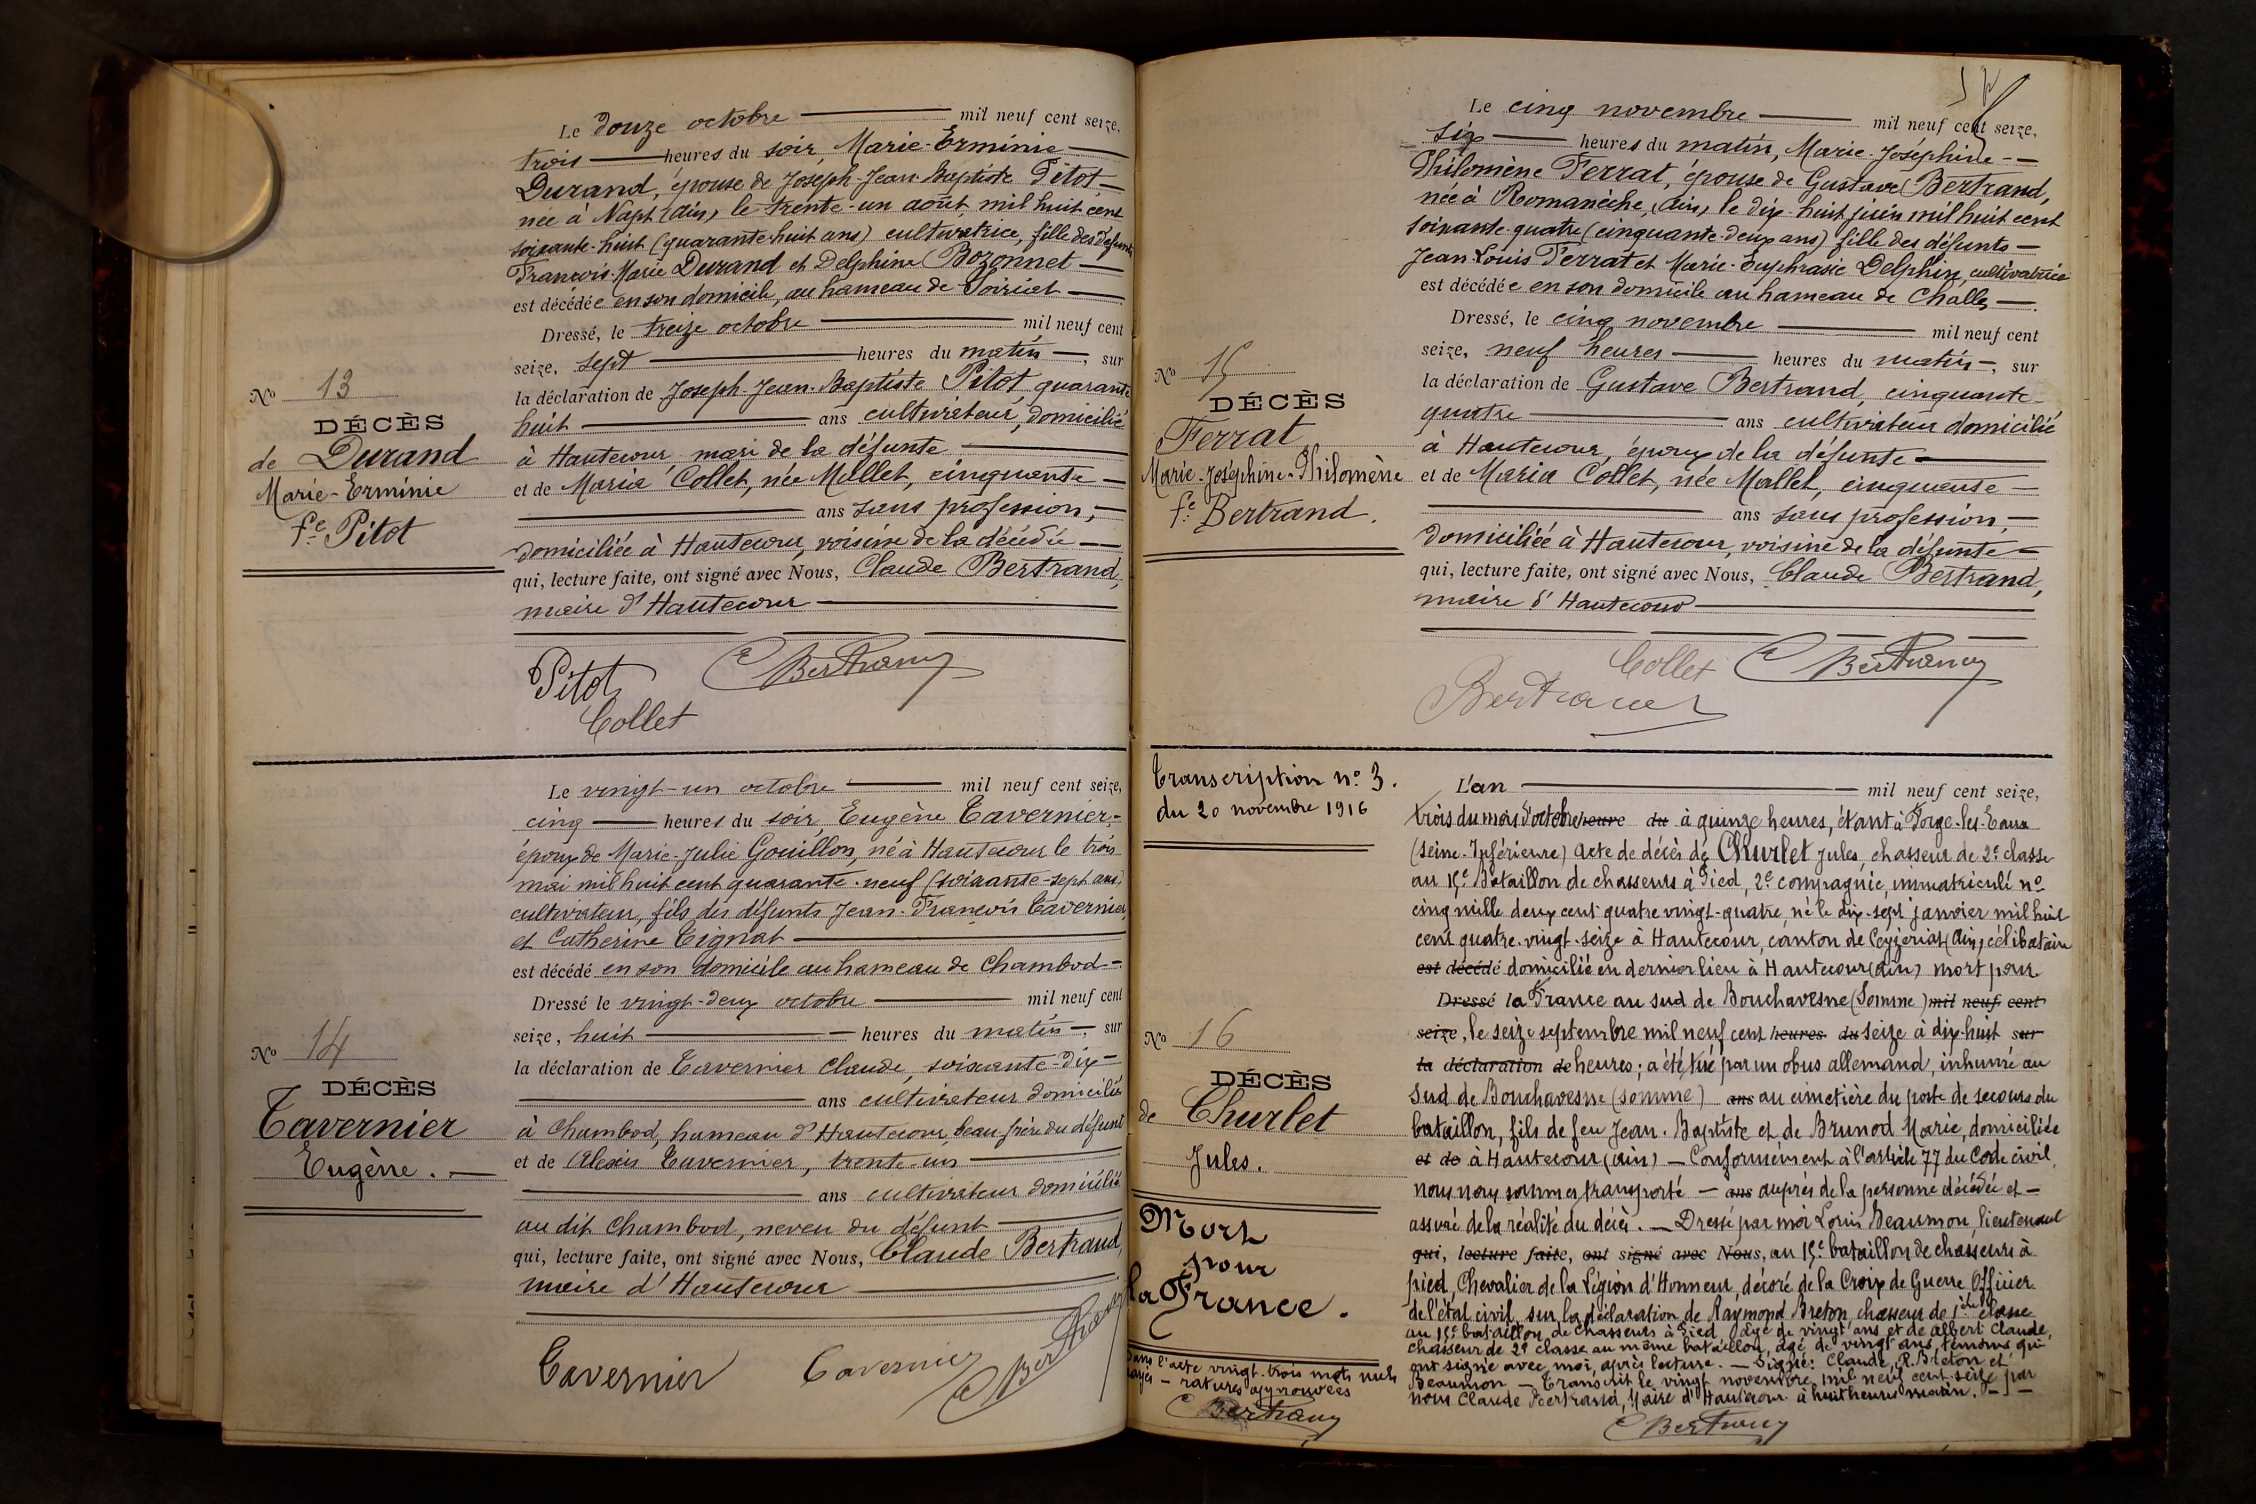 Le douze octobre mil neuf cent seize,
trois heures du soir, Marie-Erminie
Durand, épouse de Joseph-Jean-Baptiste Pitot,
née à Napt (Ain) le trente-un août, mil huit cent
soixante-huit (quarante-huit ans) cultivatrice, fille des défunts
François-Marie Durand et Delphine Bozonnet
est décédée en son domicile, au hameau de
Dressé, le treize octobre mil neuf cent
seize, sept heures du matin, sur
la déclaration de Joseph-Jean-Baptiste Pitot, quarante
huit ans cultivateur, domicilié
à Hautecour mari de la défunte
et de Maria Collet, née Mallet, cinquante
ans sans profession,
domiciliée à Hautecour, voisine de la décédée
qui, lecture faite, ont signé avec Nous, Claude Bertrand,
maire d'Hautecour
No 13
DÉCÈS
de Durand
Marie-Erminie
fe Pitot
Pitot
C Bertrand
Collet
Le vingt-un octobre mil neuf cent seize,
cinq heures du soir, Eugène Tavernier,
époux de Marie-Julie Gouillon, né à Hautecour le trois
mai mil huit cent quarante-neuf (soixante-sept ans)
cultivateur, fils des défunts Jean-François Tavernier,
et Catherine Tignat
est décédé en son domicile au hameau de Chambod
Dressé le vingt-deux octobre mil neuf cent
seize, huit heures du matin, sur
la déclaration de Tavernier Claude, soixante-dix
ans cultivateur domicilié
à Chambod, hameau d'Hautecour, beau-frère du défunt
et de Alexis Tavernier, trente-un
ans cultivateur domicilié
au dit Chambod, neveu du défunt
qui, lecture faite, ont signé avec Nous, Claude Bertrand,
maire d'Hautecour
No 14
DÉCÈS
Tavernier
Eugène.
Tavernier
Tavernier
C Bertrand
Le cinq novembre mil neuf cent seize,
six heures du matin, Marie-Joséphine-
Philomène Ferrat, épouse de Gustave Bertrand,
née à Romanèche, (Ain) le dix-huit juin mil huit cent
soixante-quatre (cinquante-deux ans) fille des défunts
Jean-Louis Ferrat et Marie-Euphrasie Delphin, cultivatrice
est décédée en son domicile au hameau de Challes
Dressé, le cinq novembre mil neuf cent
seize, neuf heures heures du matin, sur
la déclaration de Gustave Bertrand, cinquante-
quatre ans cultivateur domicilié
à Hautecour, époux de la défunte
et de Maria Collet, née Mallet, cinquante
ans sans profession,
domiciliée à Hautecour, voisine de la défunte
qui, lecture faite, ont signé avec Nous, Claude Bertrand,
maire d'Hautecour
No 15
DÉCÈS
Ferrat
Marie-Joséphine-Philomène
fe Bertrand.
Collet
C Bertrand
Bertrand
Transcription no 3.
du 20 novembre 1916
L'an mil neuf cent seize,
trois du mois d'octobre heure du à quinze heures, étant à Forge-les-Eaux
(Seine-Inférieure) Acte de décès de Churlet Jules, chasseur de 2e classe
au 15e Bataillon de chasseurs à Pied, 2e compagnie, immatriculé no
cinq mille deux cent quatre vingt-quatre, né le dix-sept janvier mil huit
cent quatre-vingt-seize à Hautecour, canton de Ceyzériat (Ain), célibataire
est décédé domicilié en dernier lieu à Hautecour (Ain) mort pour
Dressé la France au sud de Bouchavesne (Somme) mil neuf cent
seize, le seize septembre mil neuf cent heures du seize à dix-huit sur
la déclaration de heures; a été tué par un obus allemand, inhumé au
sud de Bouchavesne (somme) ans au cimetière du poste de secours du
bataillon, fils de feu Jean-Baptiste et de Brunod Marie, domiciliée
et de à Hautecour (Ain) — Conformément à l'article 77 du Code civil,
nous nous sommes transporté — ans auprès de la personne décédée et —
assuré de la réalité du décès. — Dressé par moi Louis Beaumon, lieutenant
qui, lecture faite, ont signé avec Nous, au 15e bataillon de chasseurs à
pied, Chevalier de la Légion d'Honneur, décoré de la Croix de Guerre Officier
de l'état civil, sur la déclaration de Raymond Breton, chasseur de 1ère classe
au 15e bataillon de Chasseurs à Pied, âgé de vingt ans et de Albert Claude,
chasseur de 2e classe au même bataillon, âgé de vingt ans, témoins qui
ont signé avec moi, après lecture. — Signé: Claude, R. Breton et
Beaumon — Transcrit le vingt novembre mil neuf cent seize par
nous Claude Bertrand, Maire d'Hautecour à huit heures matin.
No 16
DÉCÈS
de Churlet
Jules.
Mort
pour
la France.
Dans l'acte vingt-trois mots nuls
rayés — ratures approuvées
C Bertrand
C Bertrand